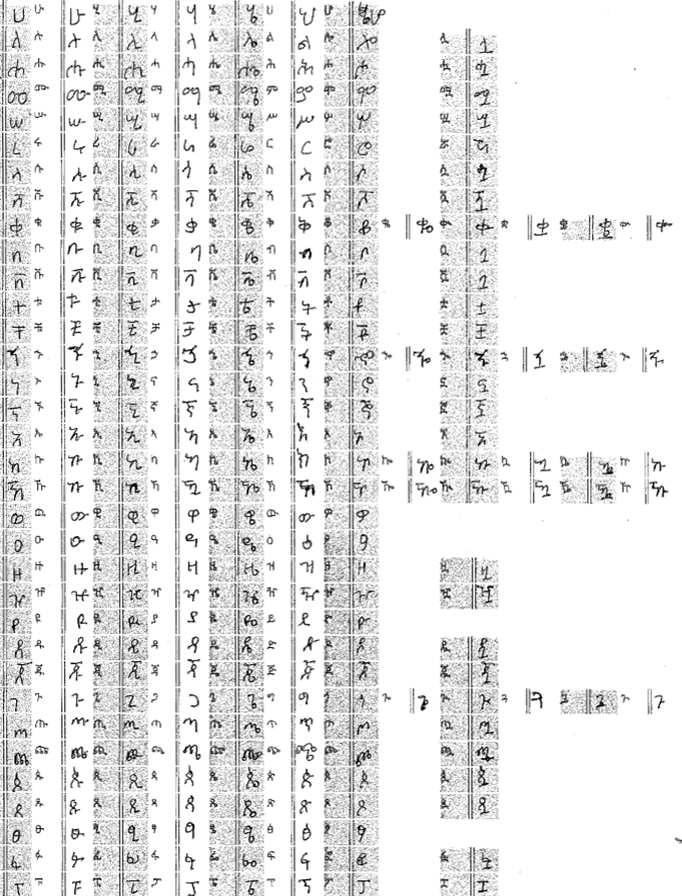 ሀ ሁ ሁ ሂ ሂ ሃ ሃ ሄ ሄ ህ ህ ሆ ሆ
ለ ሉ ሉ ሊ ሊ ላ ላ ሌ ሌ ል ል ሎ ሎ ሏ ሏ
ሐ ሑ ሑ ሒ ሒ ሓ ሓ ሔ ሔ ሕ ሕ ሖ ሖ ሗ ሗ
መ ሙ ሙ ሚ ሚ ማ ማ ሜ ሜ ም ም ሞ ሞ ሟ ሟ
ሠ ሡ ሡ ሢ ሢ ሣ ሣ ሤ ሤ ሥ ሥ ሦ ሦ ሧ ሧ
ረ ሩ ሩ ሪ ሪ ራ ራ ሬ ሬ ር ር ሮ ሮ ሯ ሯ
ሰ ሱ ሱ ሲ ሲ ሳ ሳ ሴ ሴ ስ ስ ሶ ሶ ሷ ሷ
ሸ ሹ ሹ ሺ ሺ ሻ ሻ ሼ ሼ ሽ ሽ ሾ ሾ ሿ ሿ
ቀ ቁ ቁ ቂ ቂ ቃ ቃ ቄ ቄ ቅ ቅ ቆ ቆ ቈ ቈ ቊ ቊ ቋ ቋ ቌ ቌ ቍ ቍ
በ ቡ ቡ ቢ ቢ ባ ባ ቤ ቤ ብ ብ ቦ ቦ ቧ ቧ
ቨ ቩ ቩ ቪ ቪ ቫ ቫ ቬ ቬ ቭ ቭ ቮ ቮ ቯ ቯ
ተ ቱ ቱ ቲ ቲ ታ ታ ቴ ቴ ት ት ቶ ቶ ቷ ቷ
ቸ ቹ ቹ ቺ ቺ ቻ ቻ ቼ ቼ ች ች ቾ ቾ ቿ ቿ
ኀ ኁ ኁ ኂ ኂ ኃ ኃ ኄ ኄ ኅ ኅ ኆ ኆ ኈ ኈ ኊ ኊ ኋ ኋ ኌ ኌ ኍ ኍ
ነ ኑ ኑ ኒ ኒ ና ና ኔ ኔ ን ን ኖ ኖ ኗ ኗ
ኘ ኙ ኙ ኚ ኚ ኛ ኛ ኜ ኜ ኝ ኝ ኞ ኞ ኟ ኟ
አ ኡ ኡ ኢ ኢ ኣ ኣ ኤ ኤ እ እ ኦ ኦ ኧ ኧ
ከ ኩ ኩ ኪ ኪ ካ ካ ኬ ኬ ክ ክ ኮ ኮ ኰ ኰ ኲ ኲ ኳ ኳ ኴ ኴ ኵ ኵ
ኸ ኹ ኹ ኺ ኺ ኻ ኻ ኼ ኼ ኽ ኽ ኾ ኾ ዀ ዀ ዂ ዂ ዃ ዃ ዄ ዄ ዅ ዅ
ወ ዉ ዉ ዊ ዊ ዋ ዋ ዌ ዌ ው ው ዎ ዎ
ዐ ዑ ዑ ዒ ዒ ዓ ዓ ዔ ዔ ዕ ዕ ዖ ዖ
ዘ ዙ ዙ ዚ ዚ ዛ ዛ ዜ ዜ ዝ ዝ ዞ ዞ ዟ ዟ
ዠ ዡ ዡ ዢ ዢ ዣ ዣ ዤ ዤ ዥ ዥ ዦ ዦ ዧ ዧ
የ ዩ ዩ ዪ ዪ ያ ያ ዬ ዬ ይ ይ ዮ ዮ
ደ ዱ ዱ ዲ ዲ ዳ ዳ ዴ ዴ ድ ድ ዶ ዶ ዷ ዷ
ጀ ጁ ጁ ጂ ጂ ጃ ጃ ጄ ጄ ጅ ጅ ጆ ጆ ጇ ጇ
ገ ጉ ጉ ጊ ጊ ጋ ጋ ጌ ጌ ግ ግ ጎ ጎ ጐ ጐ ጒ ጒ ጓ ጓ ጔ ጔ ጕ ጕ
ጠ ጡ ጡ ጢ ጢ ጣ ጣ ጤ ጤ ጥ ጥ ጦ ጦ ጧ ጧ
ጨ ጩ ጩ ጪ ጪ ጫ ጫ ጬ ጬ ጭ ጭ ጮ ጮ ጯ ጯ
ጰ ጱ ጱ ጲ ጲ ጳ ጳ ጴ ጴ ጵ ጵ ጶ ጶ ጷ ጷ
ጸ ጹ ጹ ጺ ጺ ጻ ጻ ጼ ጼ ጽ ጽ ጾ ጾ ጿ ጿ
ፀ ፁ ፁ ፂ ፂ ፃ ፃ ፄ ፄ ፅ ፅ ፆ ፆ
ፈ ፉ ፉ ፊ ፊ ፋ ፋ ፌ ፌ ፍ ፍ ፎ ፎ ፏ ፏ
ፐ ፑ ፑ ፒ ፒ ፓ ፓ ፔ ፔ ፕ ፕ ፖ ፖ ፗ ፗ